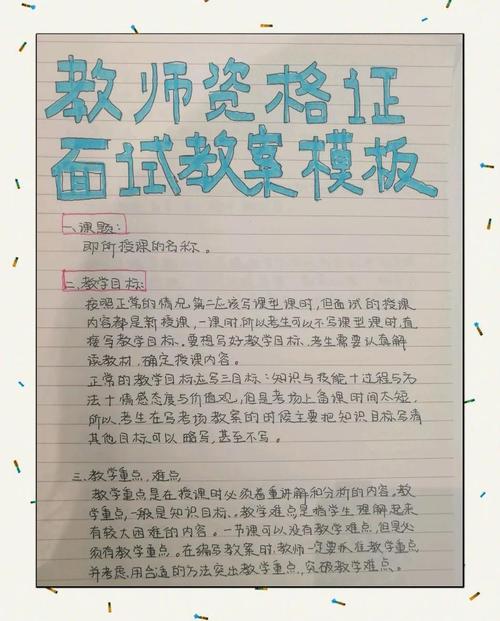 教师资格证
面试教案模板
一、课题:
即所授课的名称。
二、教学目标:
按照正常的情况第二应该写课型课时,但面试的授课
内容都是新授课,一课时,所以考生可以不写课型课时,直
接写教学目标。要想写好教学目标,考生需要认真解
读教材,确定授课内容。
正常的教学目标应写三目标:知识与技能十过程与方
法十情感态度与价值观,但是考场上备课时间太短,
所以考生在写考场教案的时候主要把知识目标写清
其他目标可以略写,甚至不写。
三、教学重点,难点
教学重点是在授课时必须着重讲解和分析的内容,教
学重点,一般是知识目标。教学难点是指学生理解起来
有较大困难的内容。一节课可以没有教学难点,但是必
须有教学重点。在编写教案时,教师一定要抓准教学重点
并考虑用合适的方法突出教学重点,突破教学难点。